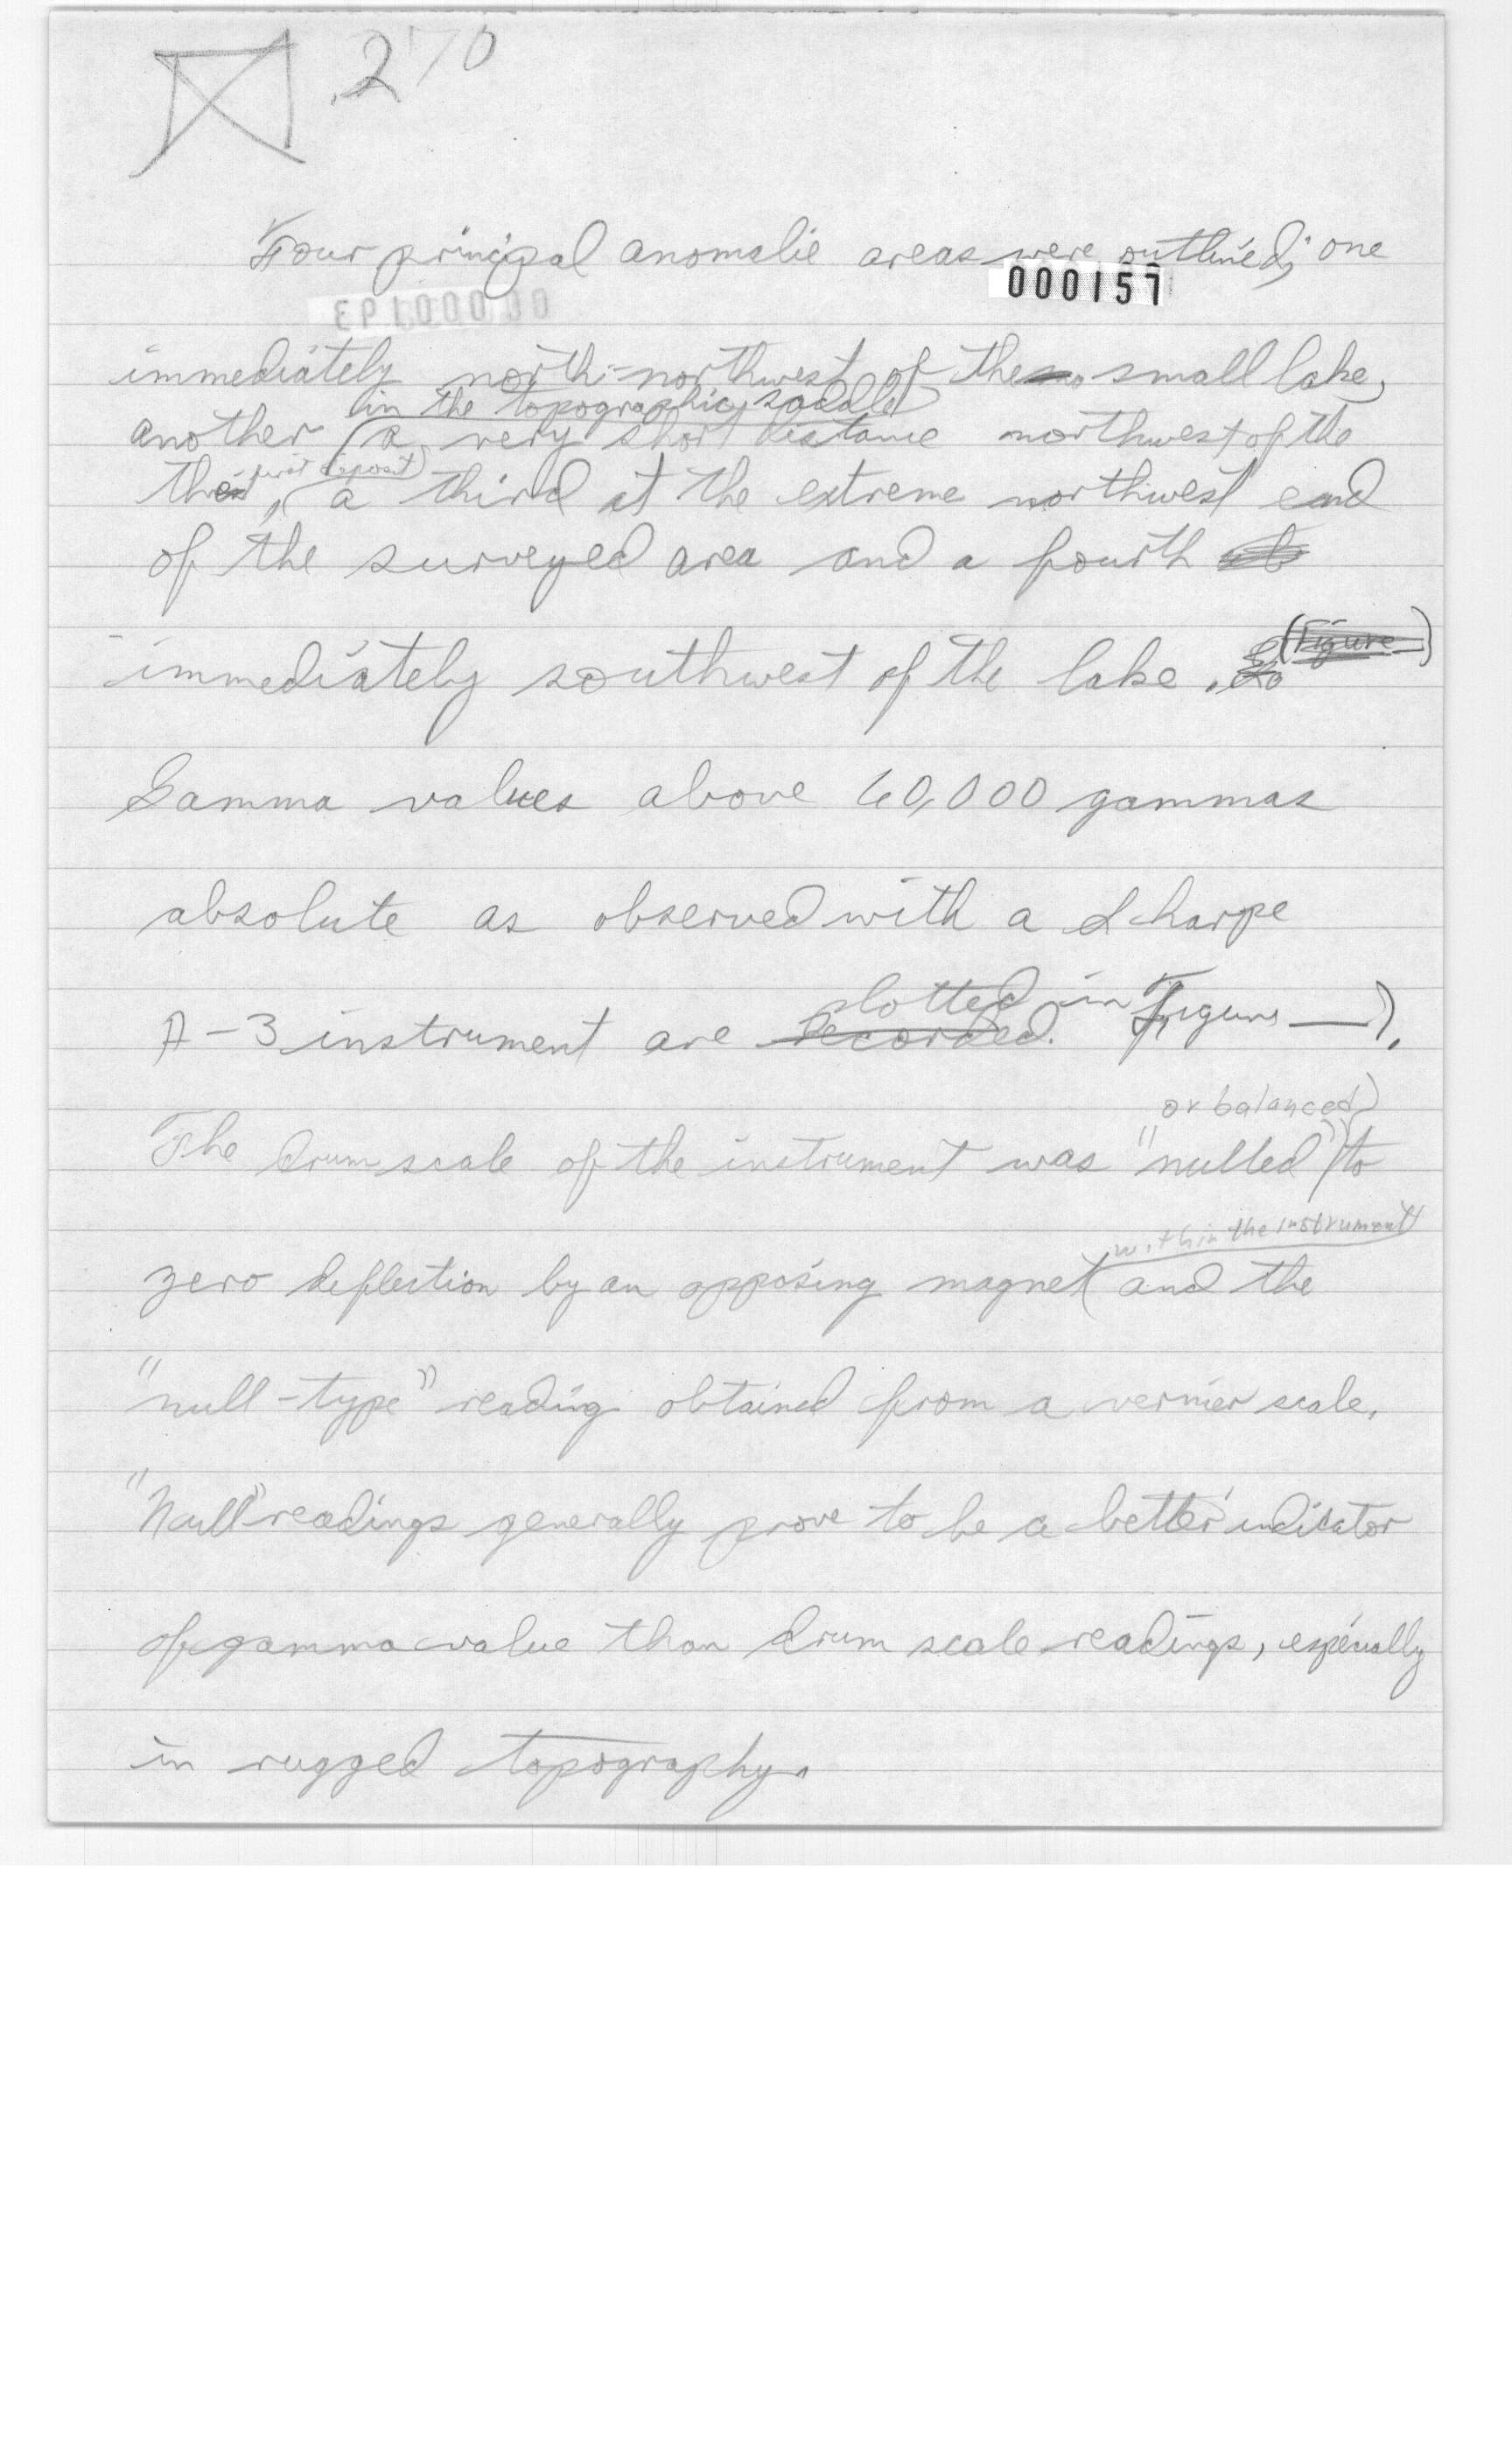 270
Four principal anomalie areas were outlined; one
000157
immediately north-northwest of the small lake,
in the topographic saddle
another a very short distance northwest of the
first deposit
a third at the extreme northwest end
of the surveyed area and a fourth
(Figure )
immediately southwest of the lake.
Gamma values above 60,000 gammas
absolute as observed with a Sharpe
plotted in Figure —).
A-3 instrument are recorded.
or balanced
The drum scale of the instrument was "nulled" to
within the instrument
zero deflection by an opposing magnet and the
"null-type" reading obtained from a vernier scale.
"Null" readings generally prove to be a better indicator
of gamma value than drum scale readings, especially
in rugged topography.